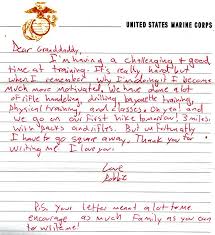 UNITED STATES MARINE CORPS
Dear Granddaddy,
I'm having a challenging & good
time at training. It's really hard but
when I remember why I'm doing it I become
much more motivated. We have done alot
of rifle handeling, drilling, bayonette training,
physical training, and classes. Oh yea! and
we go on our first hike tomorrow! 3 miles
with packs and rifles. But unfortunatly
I have to go square away. Thank you for
writing me! I love you!
Love
P.S. Your letter meant a lot to me
encourage as much family as you can
to write me!